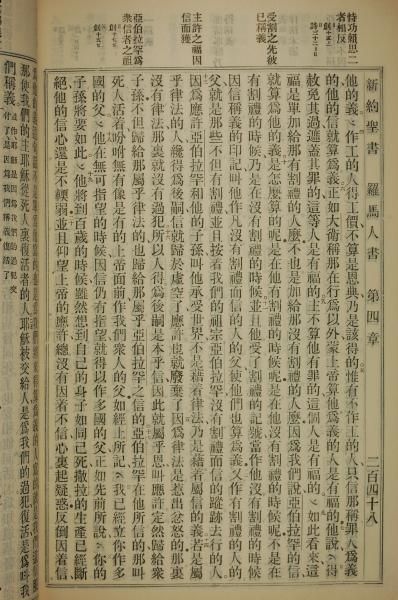 新約聖書 羅馬人書 第四章 二百四十八
特功賴恩二
者相反
創十五章六
詩三十二篇一
受割之先彼
已稱義
主許之福因
信而獲
亞伯拉罕爲
衆信者之祖
創十七章五
創十五章五
他的義。作工的人得工價不算是恩典乃是該得的惟有不作工的人只信那稱罪人爲義
的他的信就算爲義正如大衛稱那在行爲以外蒙上帝算他爲義的人是有福的他說得
赦免其過遮蓋其罪的這等人是有福的主不算他有罪的這個人是有福的如此看來這
福是單加給那有割禮的人麽不也是加給那沒有割禮的人麽因爲我們說亞伯拉罕的信
就算爲他的義是怎麽算的呢是在他有割禮的時候呢是在他沒有割禮的時候呢不是在
有割禮的時候乃是在沒有割禮的時候並且他受了割禮的記號當作他沒有割禮的時候
因信稱義的印記叫他作凡沒有割禮而信的人的父使他們也算爲義又作有割禮的人的
父就是那些不但有割禮並且按着我們的祖宗亞伯拉罕沒有割禮而信的蹤跡去行的人
因爲應許亞伯拉罕和他的子孫叫他承受世界不是藉着律法乃是藉着屬信的義若是屬
乎律法的人纔得爲後嗣信就歸於虛空了應許也就廢棄了因爲律法是惹出忿怒的那裏
沒有律法那裏就沒有過犯所以人得爲後嗣是本乎信因此就屬乎恩叫應許定然歸給衆
子孫不但歸給那屬乎律法的也歸給那屬乎亞伯拉罕之信的亞伯拉罕在他所信的那叫
死人活着吩咐無有像是有的上帝面前作我們衆人的父如經上所記我已經立你作多
國的父他在無可指望的時候因信仍有指望就得以作多國的父正如先前所說你的
子孫將要如此他將到百歲的時候雖然想到自己的身子如同已死撒拉的生產已經斷
絕他的信心還是不輭弱並且仰望上帝的應許總沒有因着不信心裏起疑惑反倒因着信
那使我們的主耶穌從死人裏復活者的人耶穌被交給人是爲我們的過犯復活是爲叫我
們稱義